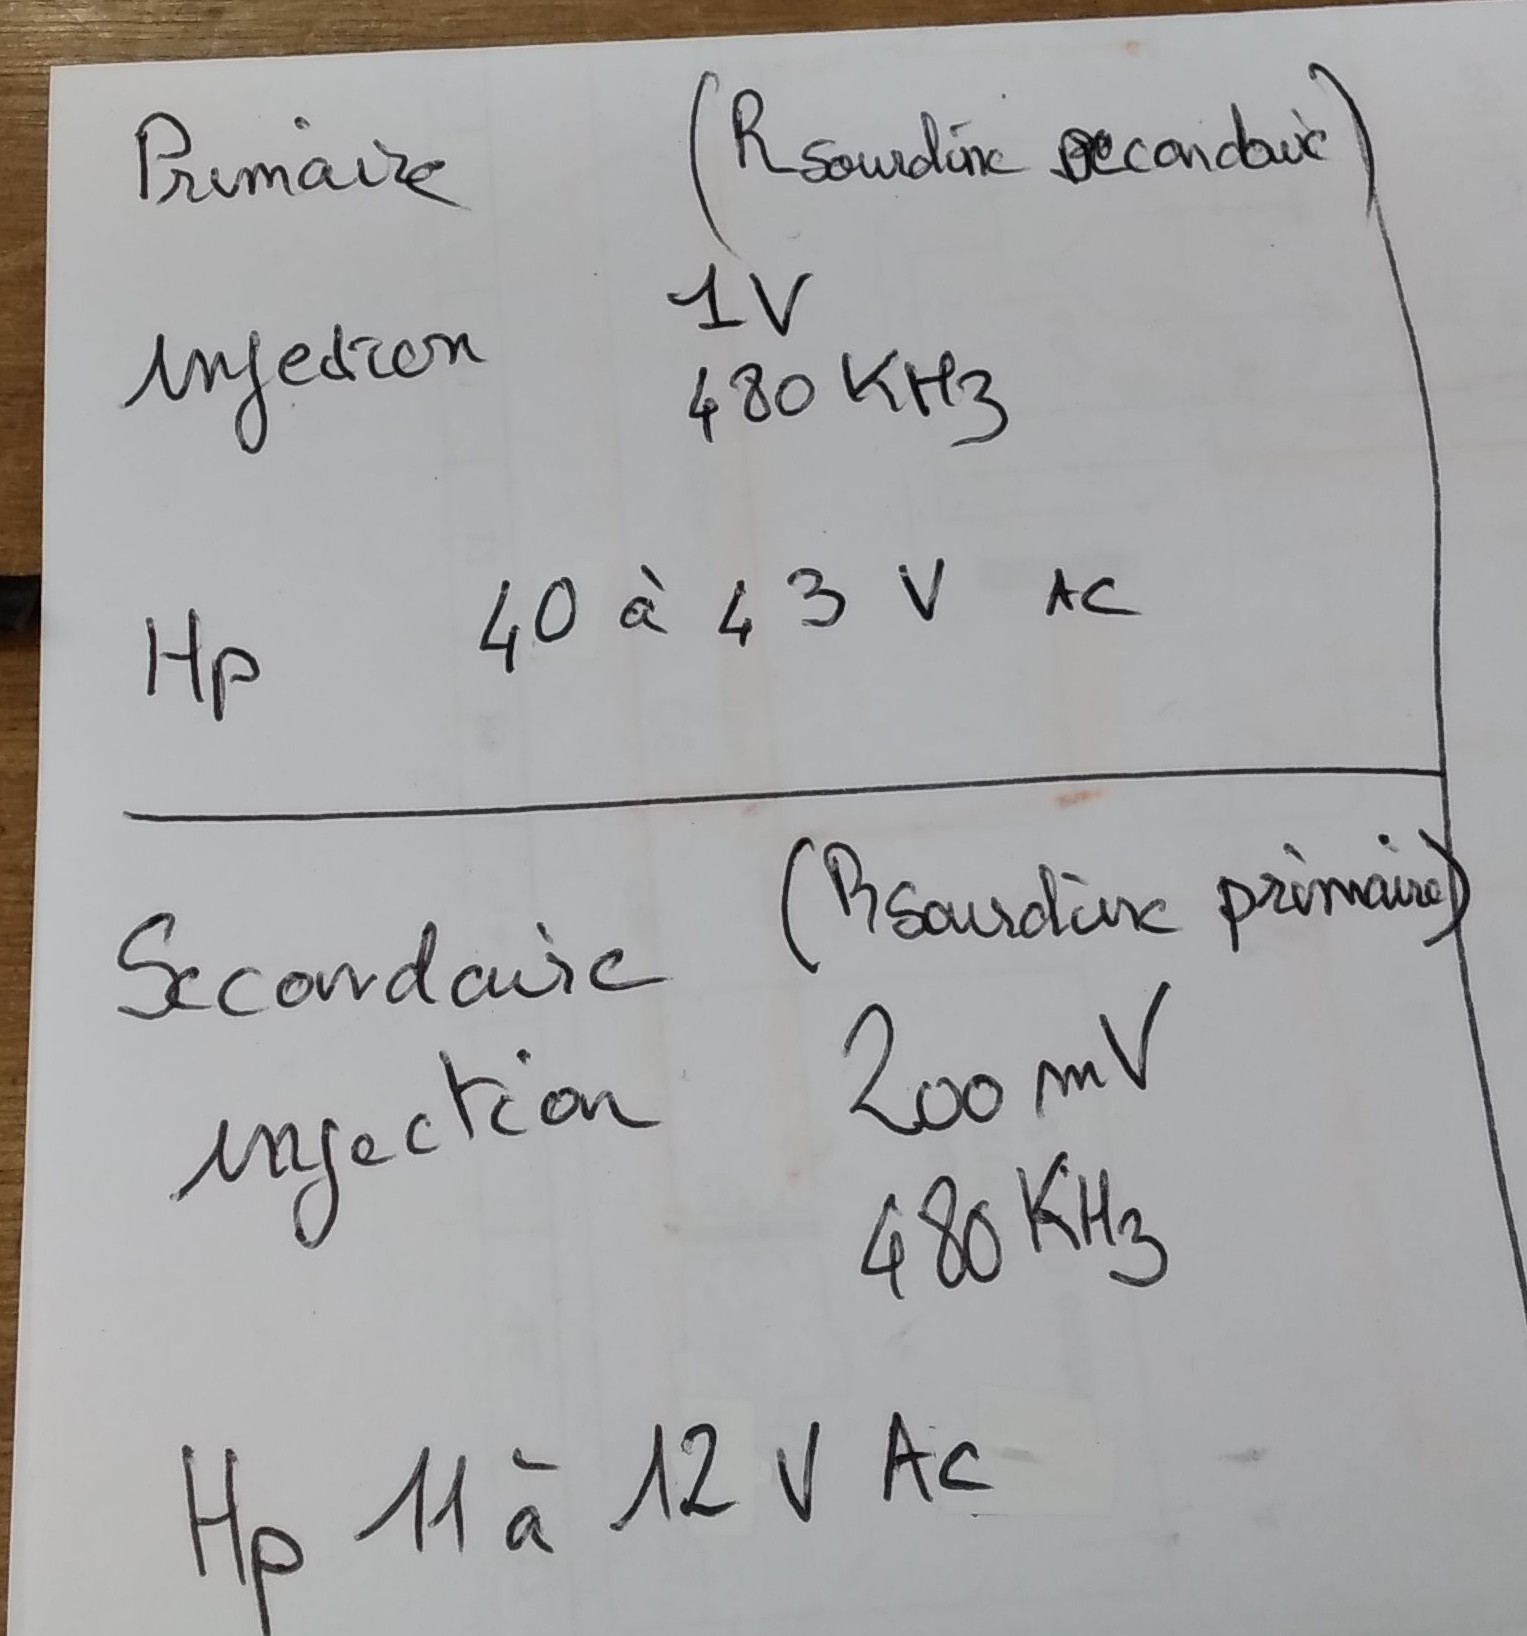 Primaire (R sourdine secondaire)
1V
injection
480 KHz
Hp 40 à 43 V AC
Secondaire (R sourdine primaire)
injection 200 mV
480 KHz
Hp 11 à 12 V AC